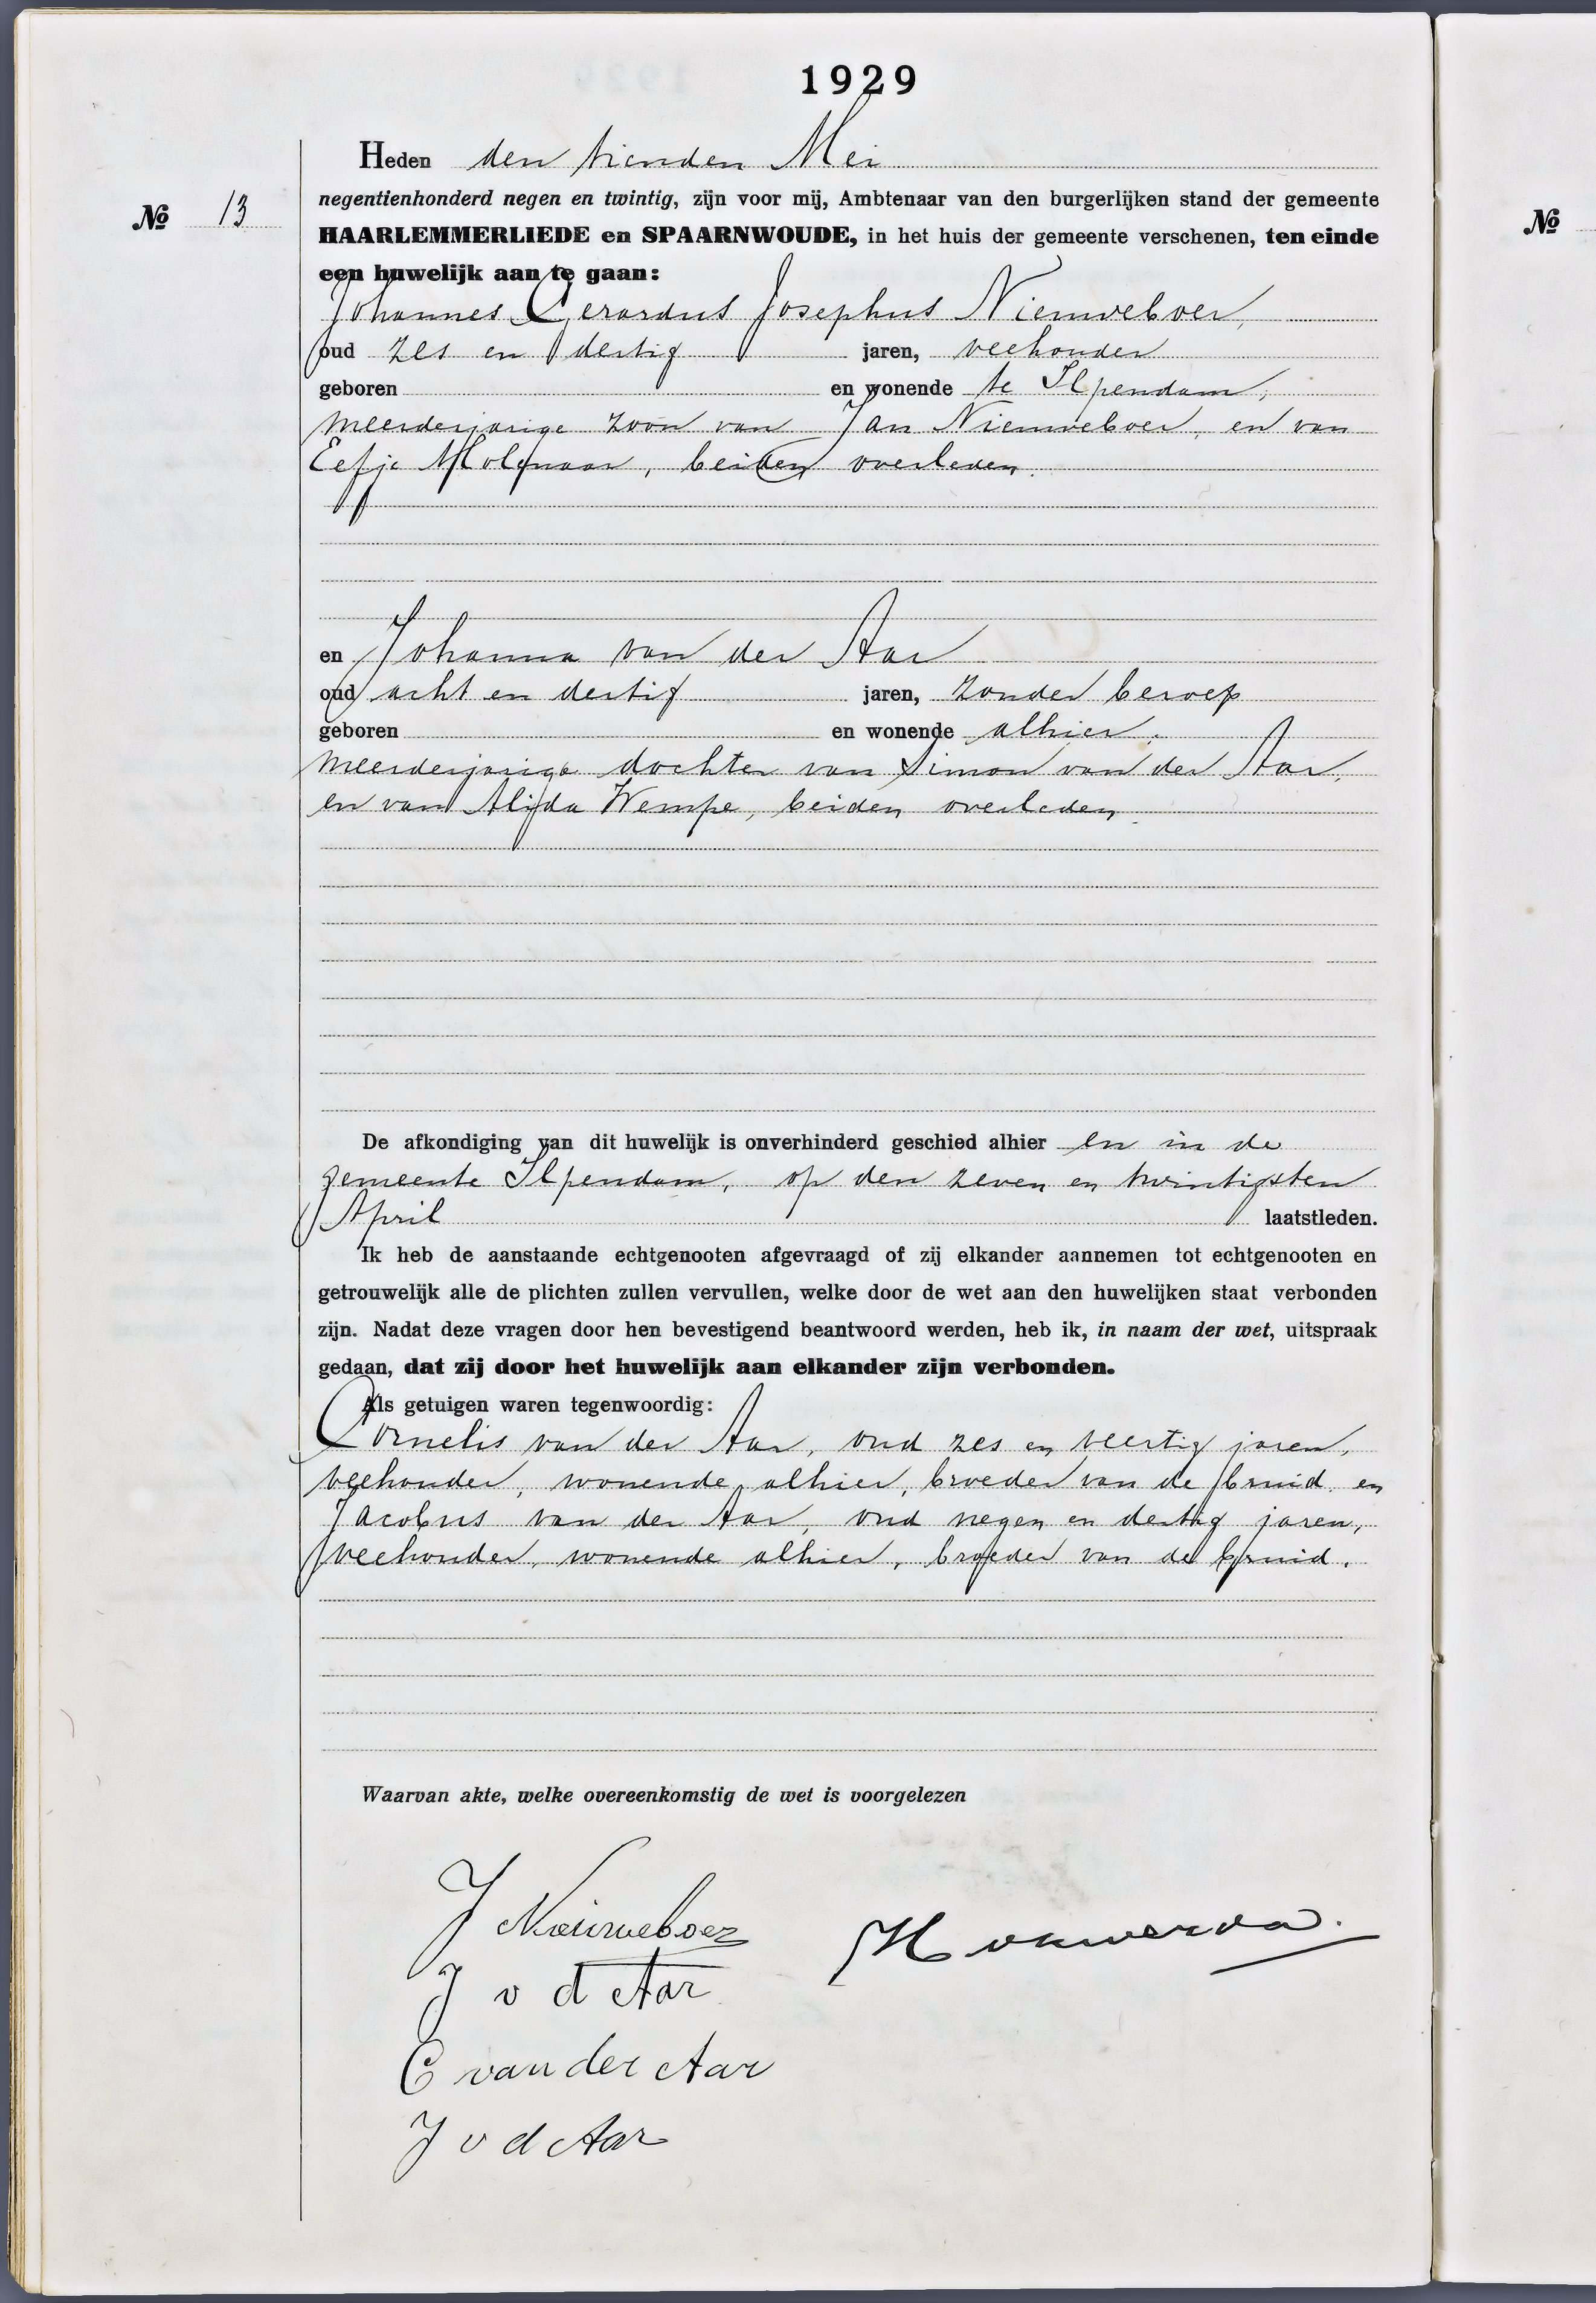 1929
Heden den tienden Mei
negentienhonderd negen en twintig, zijn voor mij, Ambtenaar van den burgerlijken stand der gemeente
No 13
No
HAARLEMMERLIEDE en SPAARNWOUDE, in het huis der gemeente verschenen, ten einde
een huwelijk aan te gaan:
Johannes Gerardus Josephus Nieuweboer,
oud zes en dertig jaren, veehouder
geboren en wonende te Ilpendam,
meerderjarige zoon van Jan Nieuweboer, en van
Eefje Molenaar, beiden overleden.
en Johanna van der Aar
oud acht en dertig jaren, zonder beroep
geboren en wonende alhier,
meerderjarige dochter van Simon van der Aar,
en van Alijda Wempe, beiden overleden.
De afkondiging van dit huwelijk is onverhinderd geschied alhier en in de
gemeente Ilpendam, op den zeven en twintigsten
April laatstleden.
Ik heb de aanstaande echtgenooten afgevraagd of zij elkander aannemen tot echtgenooten en
getrouwelijk alle de plichten zullen vervullen, welke door de wet aan den huwelijken staat verbonden
zijn. Nadat deze vragen door hen bevestigend beantwoord werden, heb ik, in naam der wet, uitspraak
gedaan, dat zij door het huwelijk aan elkander zijn verbonden.
Als getuigen waren tegenwoordig:
Cornelis van der Aar, oud zes en veertig jaren,
veehouder, wonende alhier, broeder van de bruid en
Jacobus van der Aar, oud negen en dertig jaren,
veehouder, wonende alhier, broeder van de bruid.
Waarvan akte, welke overeenkomstig de wet is voorgelezen
J Nieuweboer
J v d Aar
C van der Aar
J v d Aar